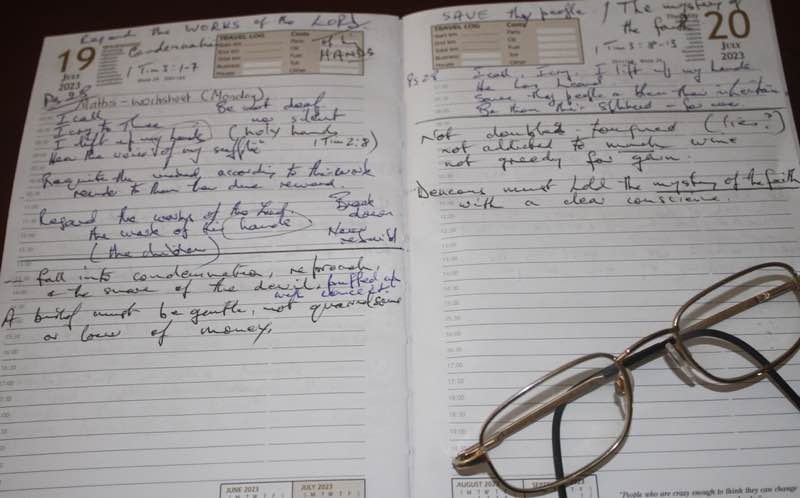 Regard the WORKS of the LORD
19
JULY
2023
Condemnation
1 Tim 3:1-7
TRAVEL LOG
Costs
of
HANDS
Ps 28
Maths - Worksheet (Monday)
I call
Be not deaf
I cry to Thee
nor silent
I lift up my hands (holy hands
1 Tim 2:8)
Hear the voice of my
Requite the wicked according to their work
render to them their due reward
Regard the works of the Lord
the work of his hands
(the children)
Break
down
Never
rebuild
fall into condemnation, reproach,
& the snare of the devil, puffed up
with conceit.
A must be gentle, not quarrelsome
or lover of money.
JUNE 2023
JULY 2023
SAVE thy people / The mystery of
the faith
20
JULY
2023
TRAVEL LOG
Costs
1 Tim 3: 8-13
Ps 28
I call, I cry, I lift up my hands
He has heard
Save thy people & bless their
Be thou their Shepherd - for ever
Not double-tongued (lies?)
not addicted to much wine
not greedy for gain.
Deacons must hold the mystery of the faith
with a clear conscience.
AUGUST 2023
"People who are crazy enough to think they can change